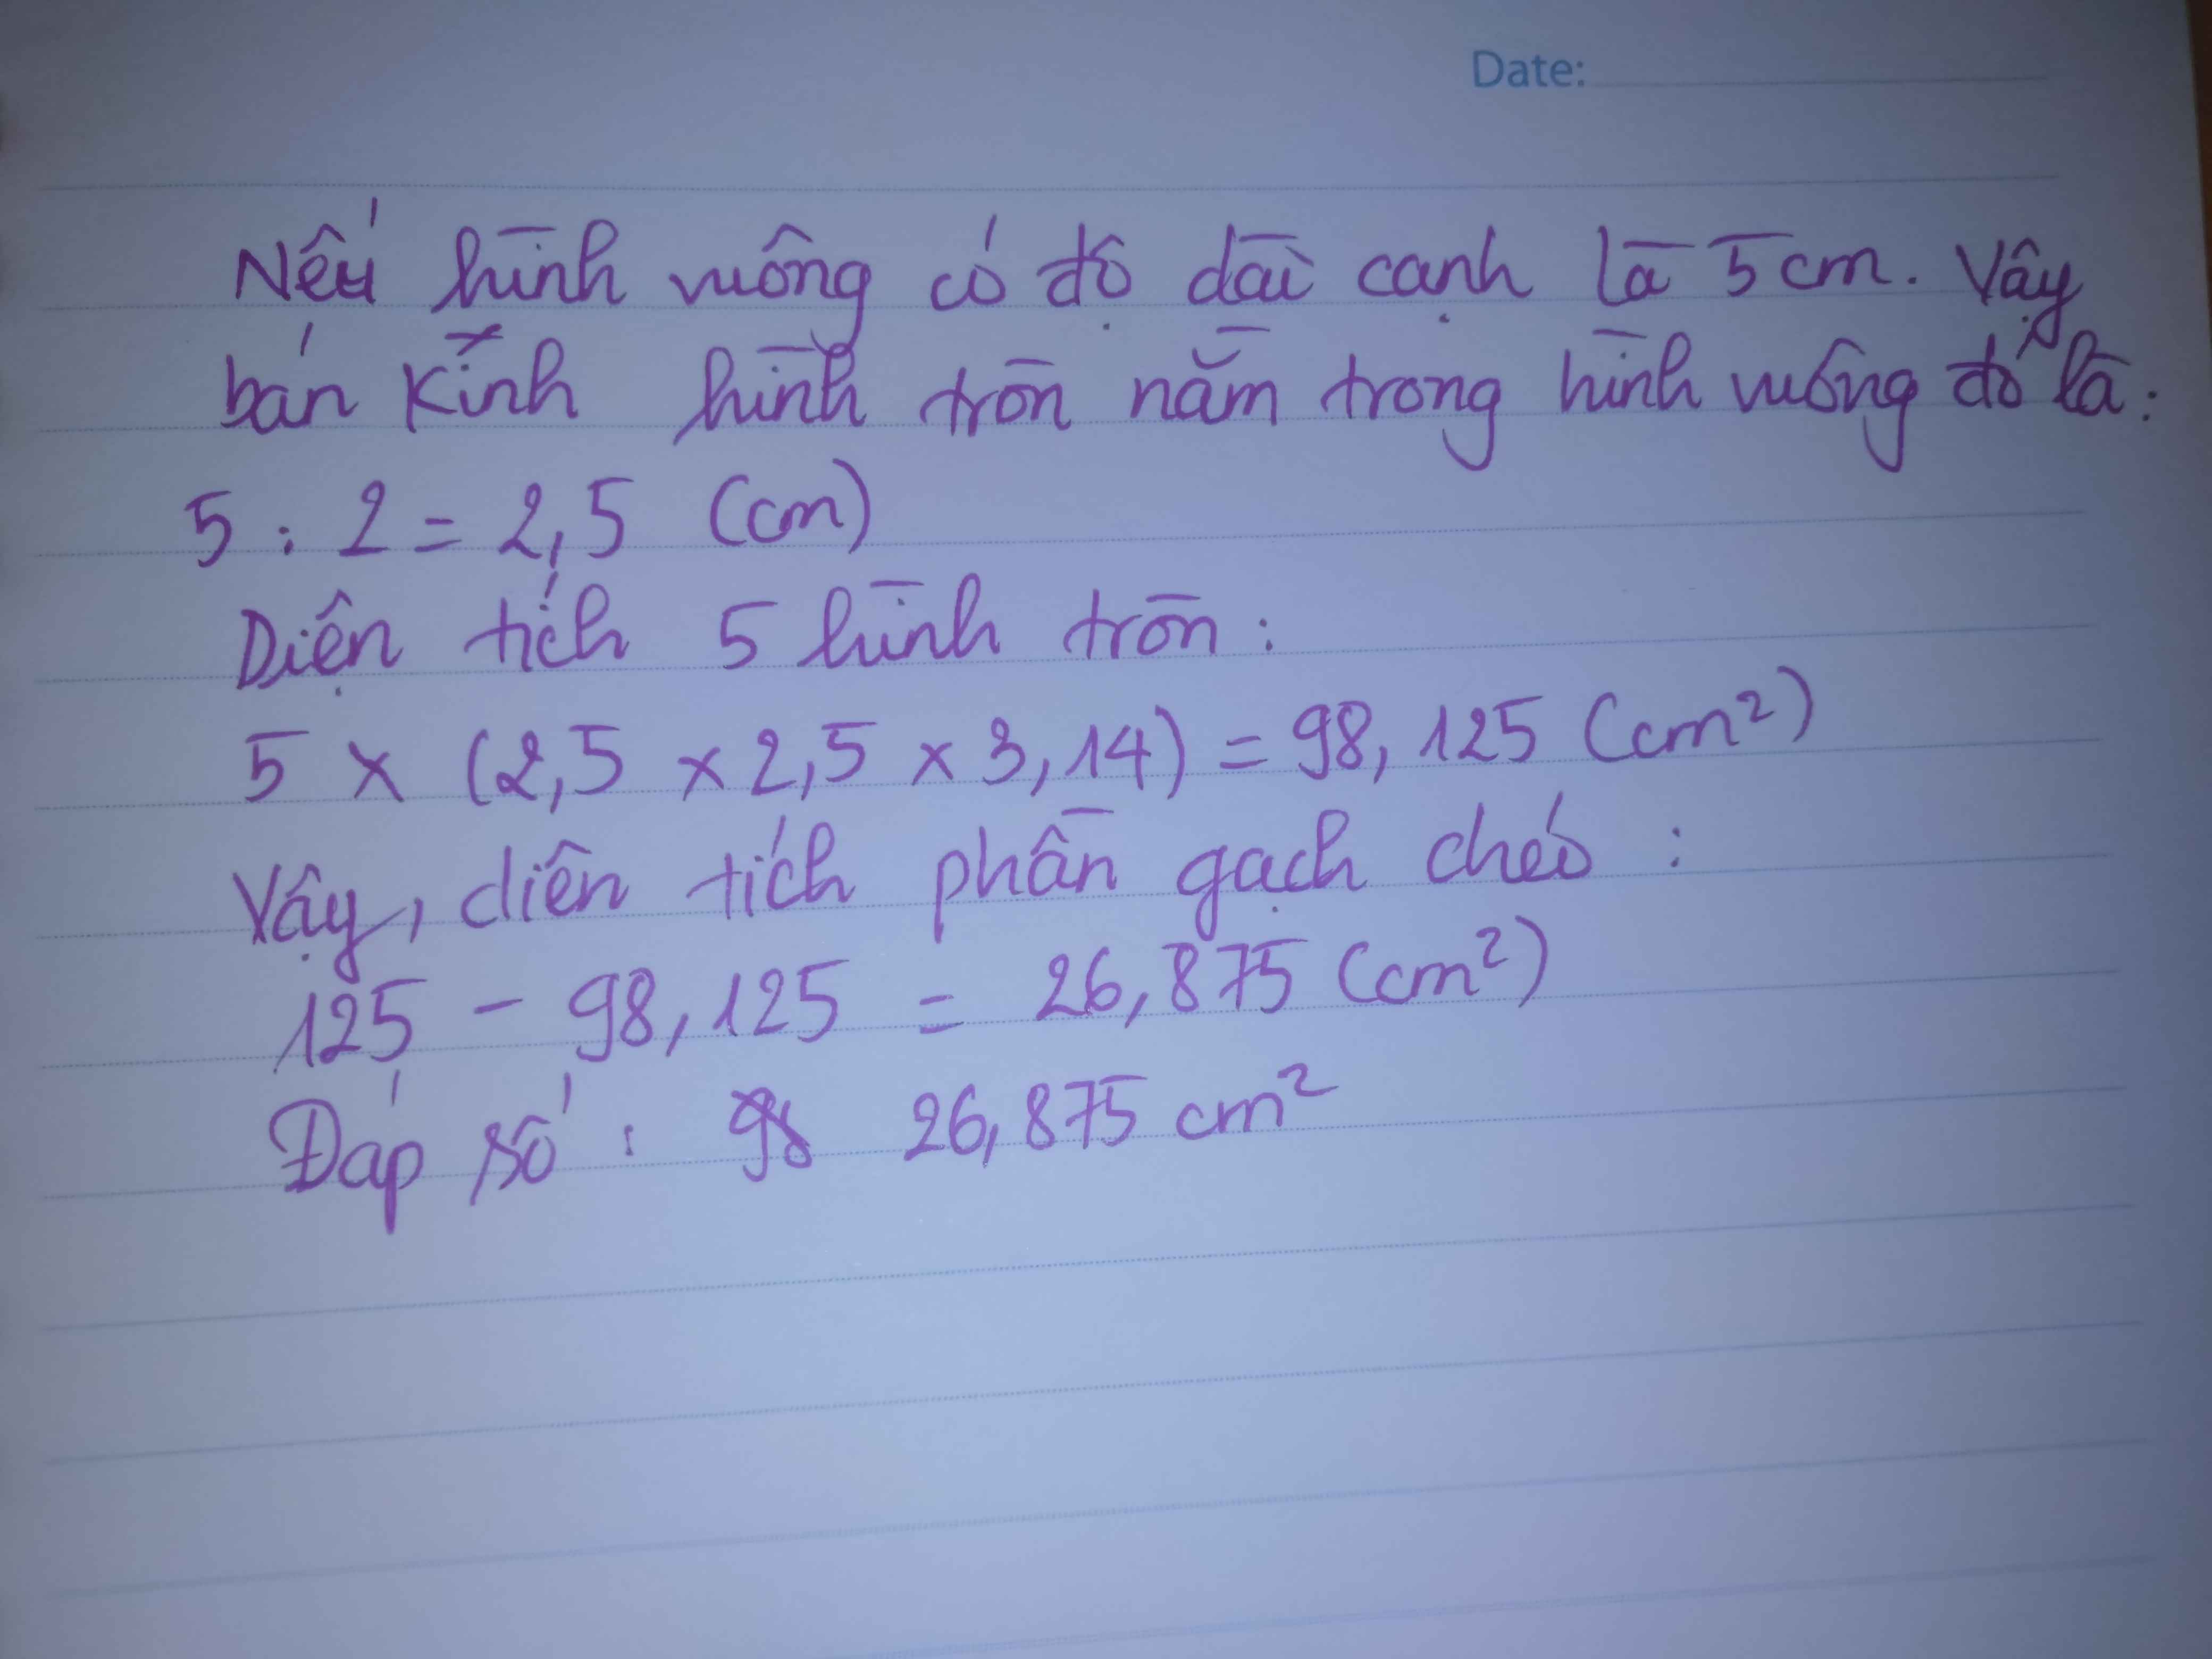 Date:
Nếu hình vuông có độ dài cạnh là 5cm. Vậy
bán kính hình tròn nằm trong hình vuông đó là:
5 : 2 = 2,5 (cm)
Diện tích 5 hình tròn:
5 x (2,5 x 2,5 x 3,14) = 98,125 (cm²)
Vậy, diên tích phần gạch chéo :
125 - 98,125 = 26,875 (cm²)
Đáp số : 26,875 cm²